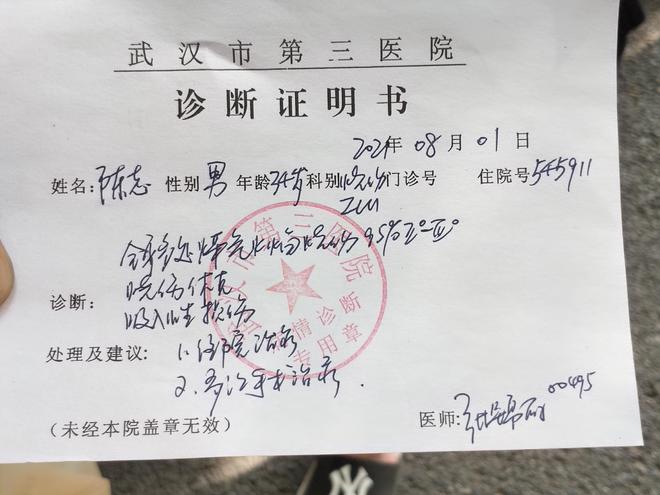 武汉市第三医院
诊断证明书
2021年 08月 01日
姓名: 陈志 性别 男 年龄 34岁 科别 烧伤ICU 门诊号 住院号 545911
全身多处煤气火焰烧伤 95% II°-III°
诊断: 烧伤休克
吸入性损伤
处理及建议: 1.住院治疗
2.多次手术治疗.
武汉市第三医院
病情诊断
专用章
医师: 00495
(未经本院盖章无效)
NY